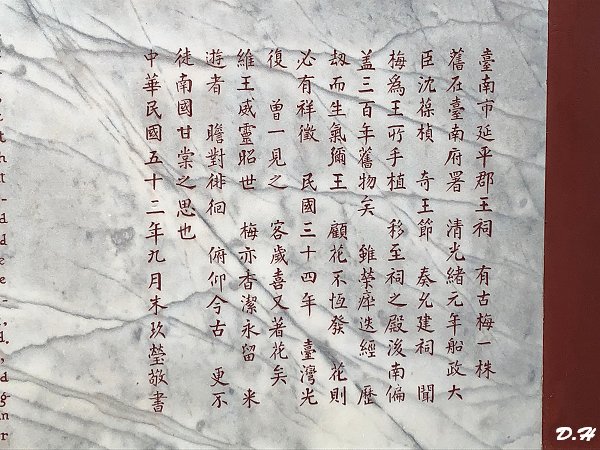 臺南市延平郡王祠　有古梅一株
舊在臺南府署　清光緒元年船政大
臣沈葆楨　奇王節　奏允建祠　聞
梅為王所手植　移至祠之殿後南偏
蓋三百年舊物矣　雖榮瘁迭經　歷
劫而生氣彌王　顧花不恆發　花則
必有祥徵　民國三十四年　臺灣光
復　曾一見之　客歲喜又著花矣
維王威靈昭世　梅亦香潔永留　來
遊者　瞻對徘徊　俯仰今古　更不
徒南國甘棠之思也
中華民國五十二年九月末玖瑩敬書
D.H